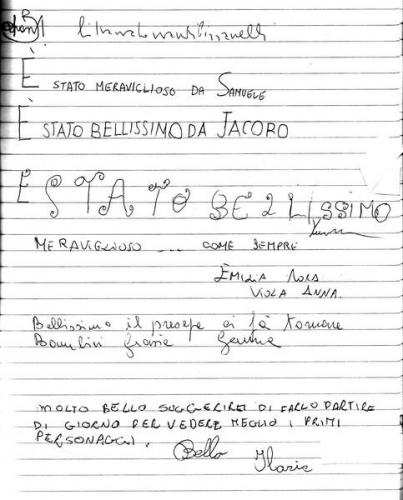 È STATO MERAVIGLIOSO DA SAMUELE
È STATO BELLISSIMO DA JACOPO
E STATO BELLISSIMO
MERAVIGLIOSO ... COME SEMPRE
EMILIA NORA
VIOLA ANNA.
Bellissimo il presepe ci fà tornare
Bambini Grazie
MOLTO BELLO SUGGERIREI DI FARLO PARTIRE
DI GIORNO PER VEDERE MEGLIO I PRIMI
PERSONAGGI.
Bello
Ilaria